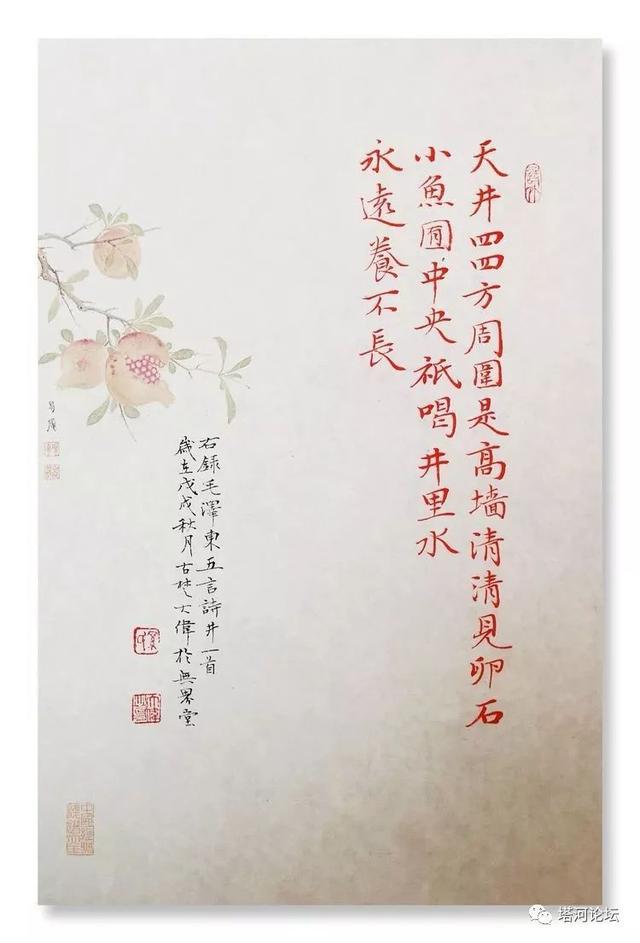 天井四四方周圍是高墙清清見卵石
小魚囿中央祇喝井里水
永遠養不長
右錄毛澤東五言詩井一首
歲在戊戌秋月古楚大偉於無界堂
塔河论坛